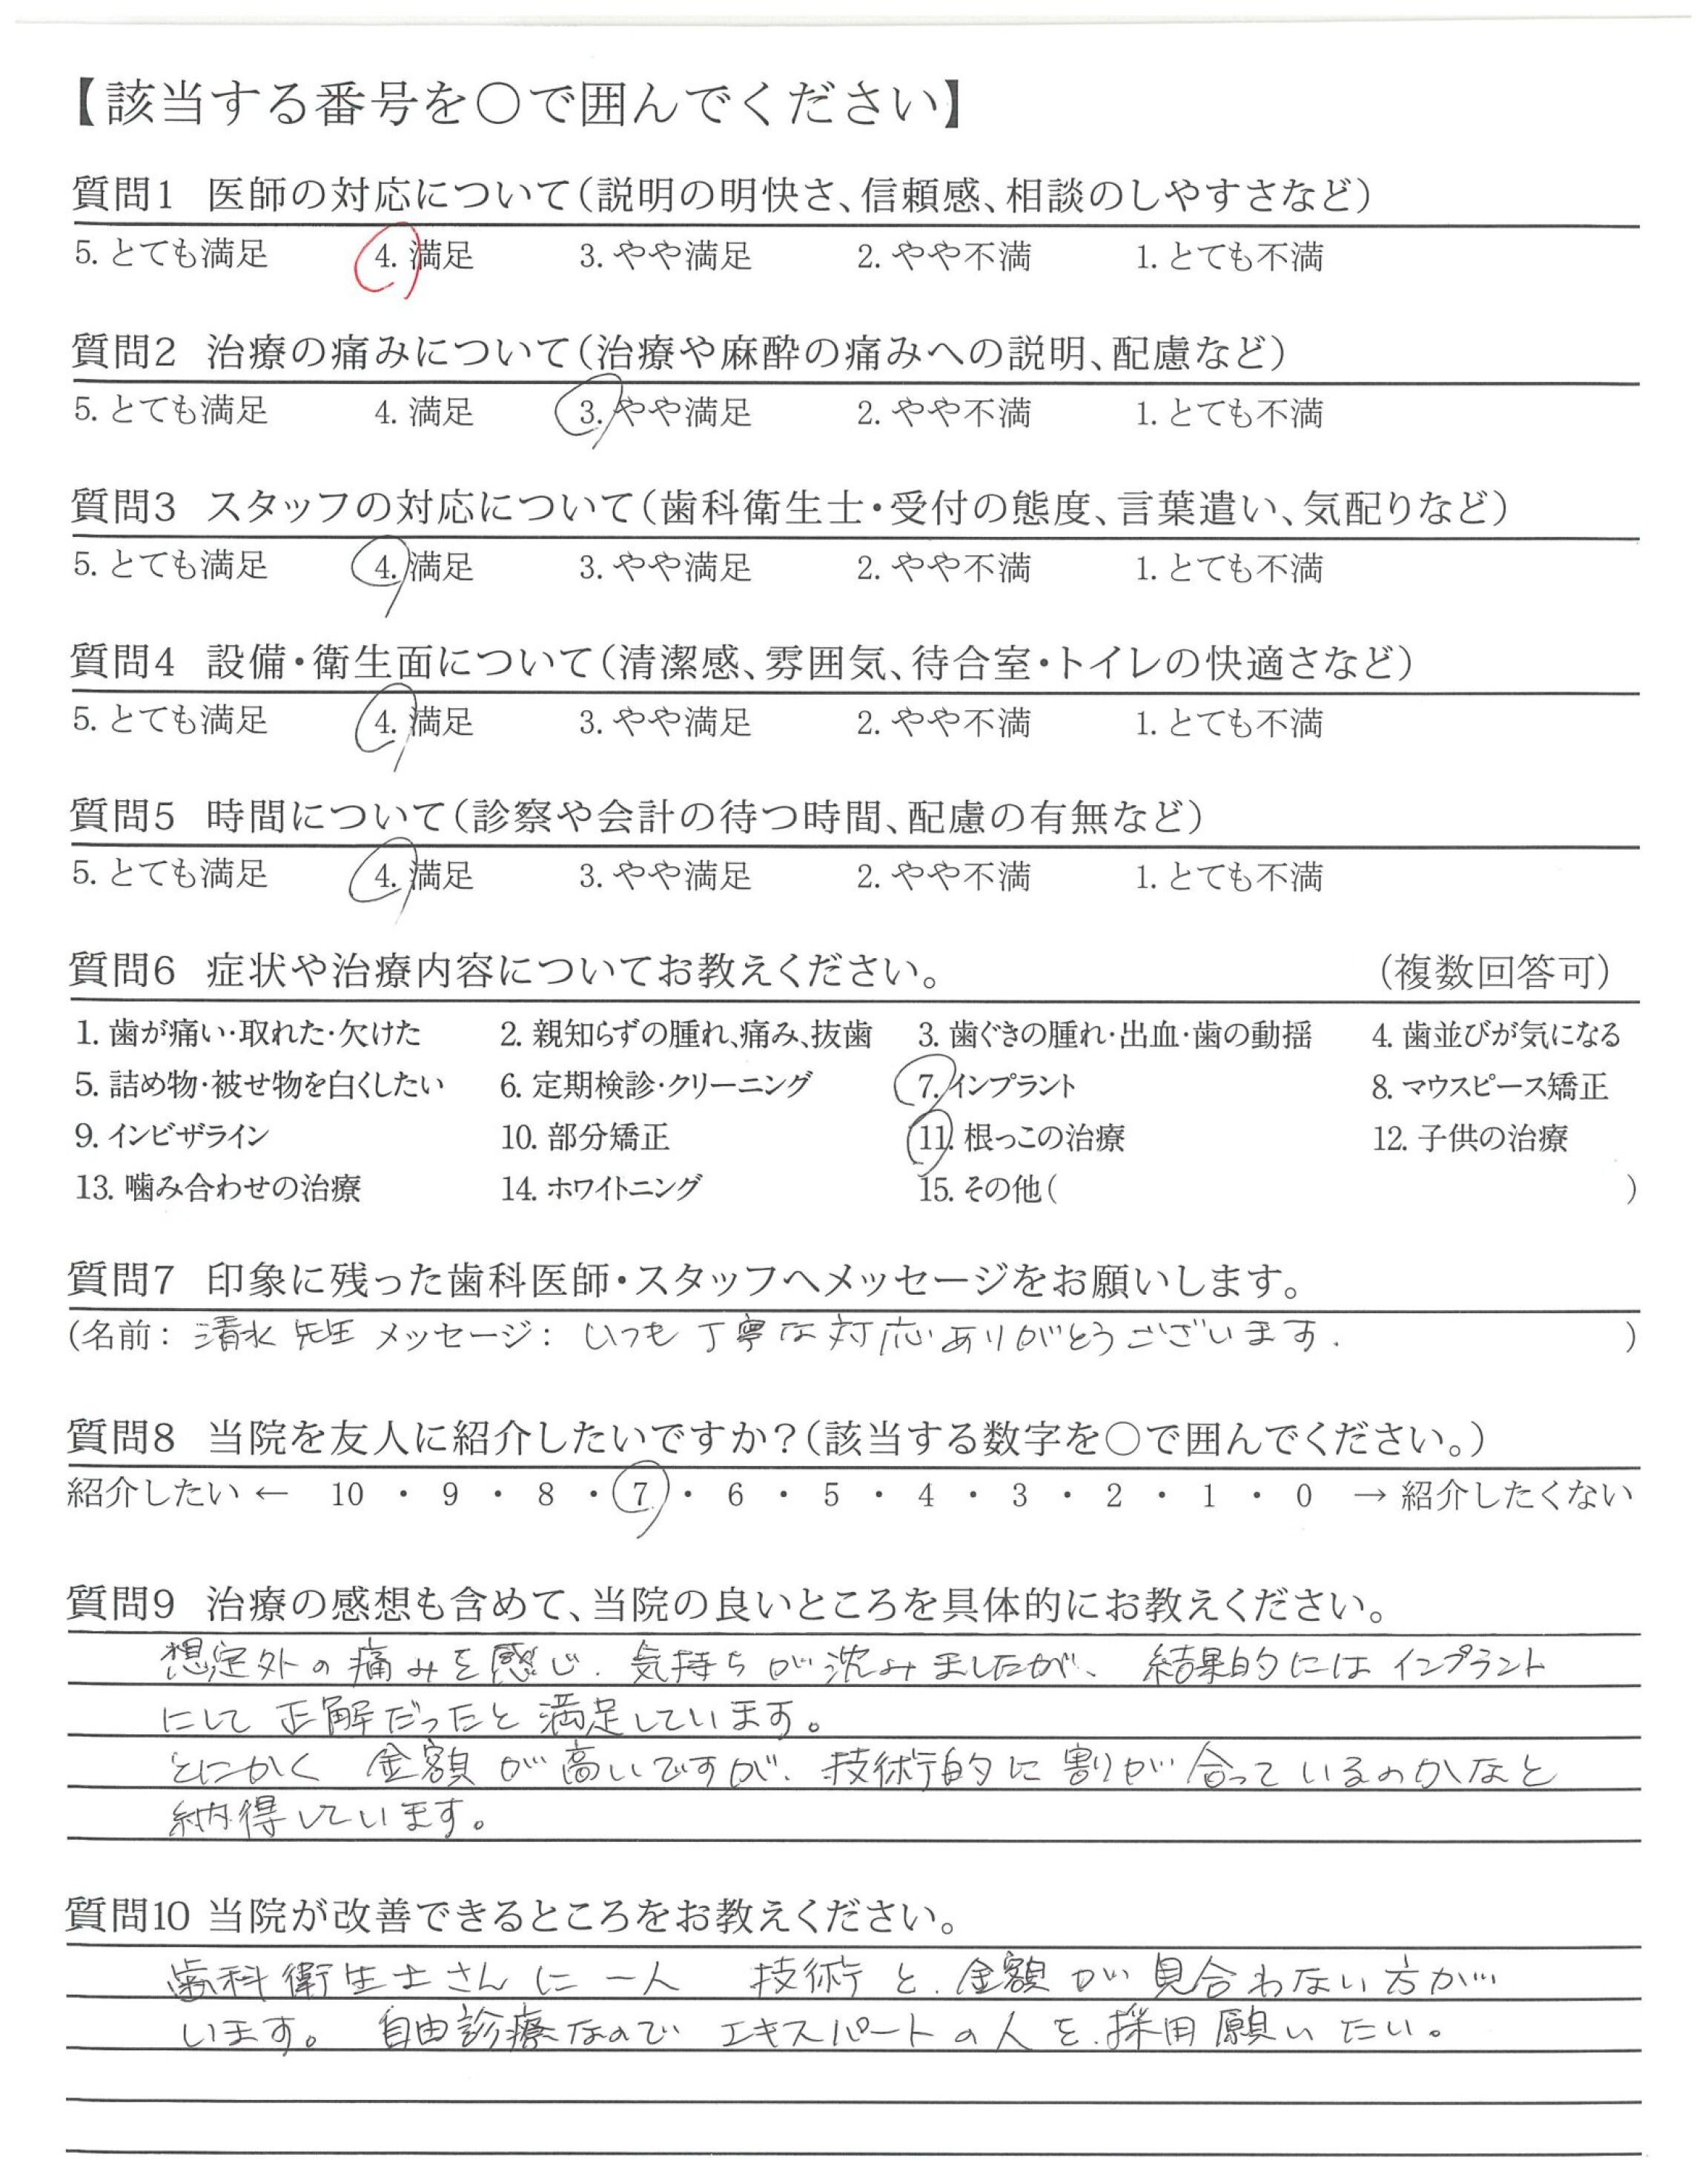 【該当する番号を○で囲んでください】
質問1 医師の対応について(説明の明快さ、信頼感、相談のしやすさなど)
5. とても満足 4. 満足 3. やや満足 2. やや不満 1. とても不満
質問2 治療の痛みについて(治療や麻酔の痛みへの説明、配慮など)
5. とても満足 4. 満足 3. やや満足 2. やや不満 1. とても不満
質問3 スタッフの対応について(歯科衛生士・受付の態度、言葉遣い、気配りなど)
5. とても満足 4. 満足 3. やや満足 2. やや不満 1. とても不満
質問4 設備・衛生面について(清潔感、雰囲気、待合室・トイレの快適さなど)
5. とても満足 4. 満足 3. やや満足 2. やや不満 1. とても不満
質問5 時間について(診察や会計の待つ時間、配慮の有無など)
5. とても満足 4. 満足 3. やや満足 2. やや不満 1. とても不満
質問6 症状や治療内容についてお教えください。 (複数回答可)
1. 歯が痛い・取れた・欠けた 2. 親知らずの腫れ、痛み、抜歯 3. 歯ぐきの腫れ・出血・歯の動揺 4. 歯並びが気になる
5. 詰め物・被せ物を白くしたい 6. 定期検診・クリーニング 7. インプラント 8. マウスピース矯正
9. インビザライン 10. 部分矯正 11. 根っこの治療 12. 子供の治療
13. 噛み合わせの治療 14. ホワイトニング 15. その他( )
質問7 印象に残った歯科医師・スタッフへメッセージをお願いします。
(名前: 清水 先生 メッセージ: いつも丁寧な対応ありがとうございます. )
質問8 当院を友人に紹介したいですか?(該当する数字を○で囲んでください。)
紹介したい ← 10 ・ 9 ・ 8 ・ 7 ・ 6 ・ 5 ・ 4 ・ 3 ・ 2 ・ 1 ・ 0 → 紹介したくない
質問9 治療の感想も含めて、当院の良いところを具体的にお教えください。
想定外の痛みを感じ、気持ちが沈みましたが、結果的にはインプラント
にして正解だったと満足しています。
とにかく 金額が高いですが、技術的に割りが合っているのかなと
納得しています。
質問10 当院が改善できるところをお教えください。
歯科衛生士さんに一人 技術と、金額が見合わない方が
います。 自由診療なので エキスパートの人を、採用願いたい。